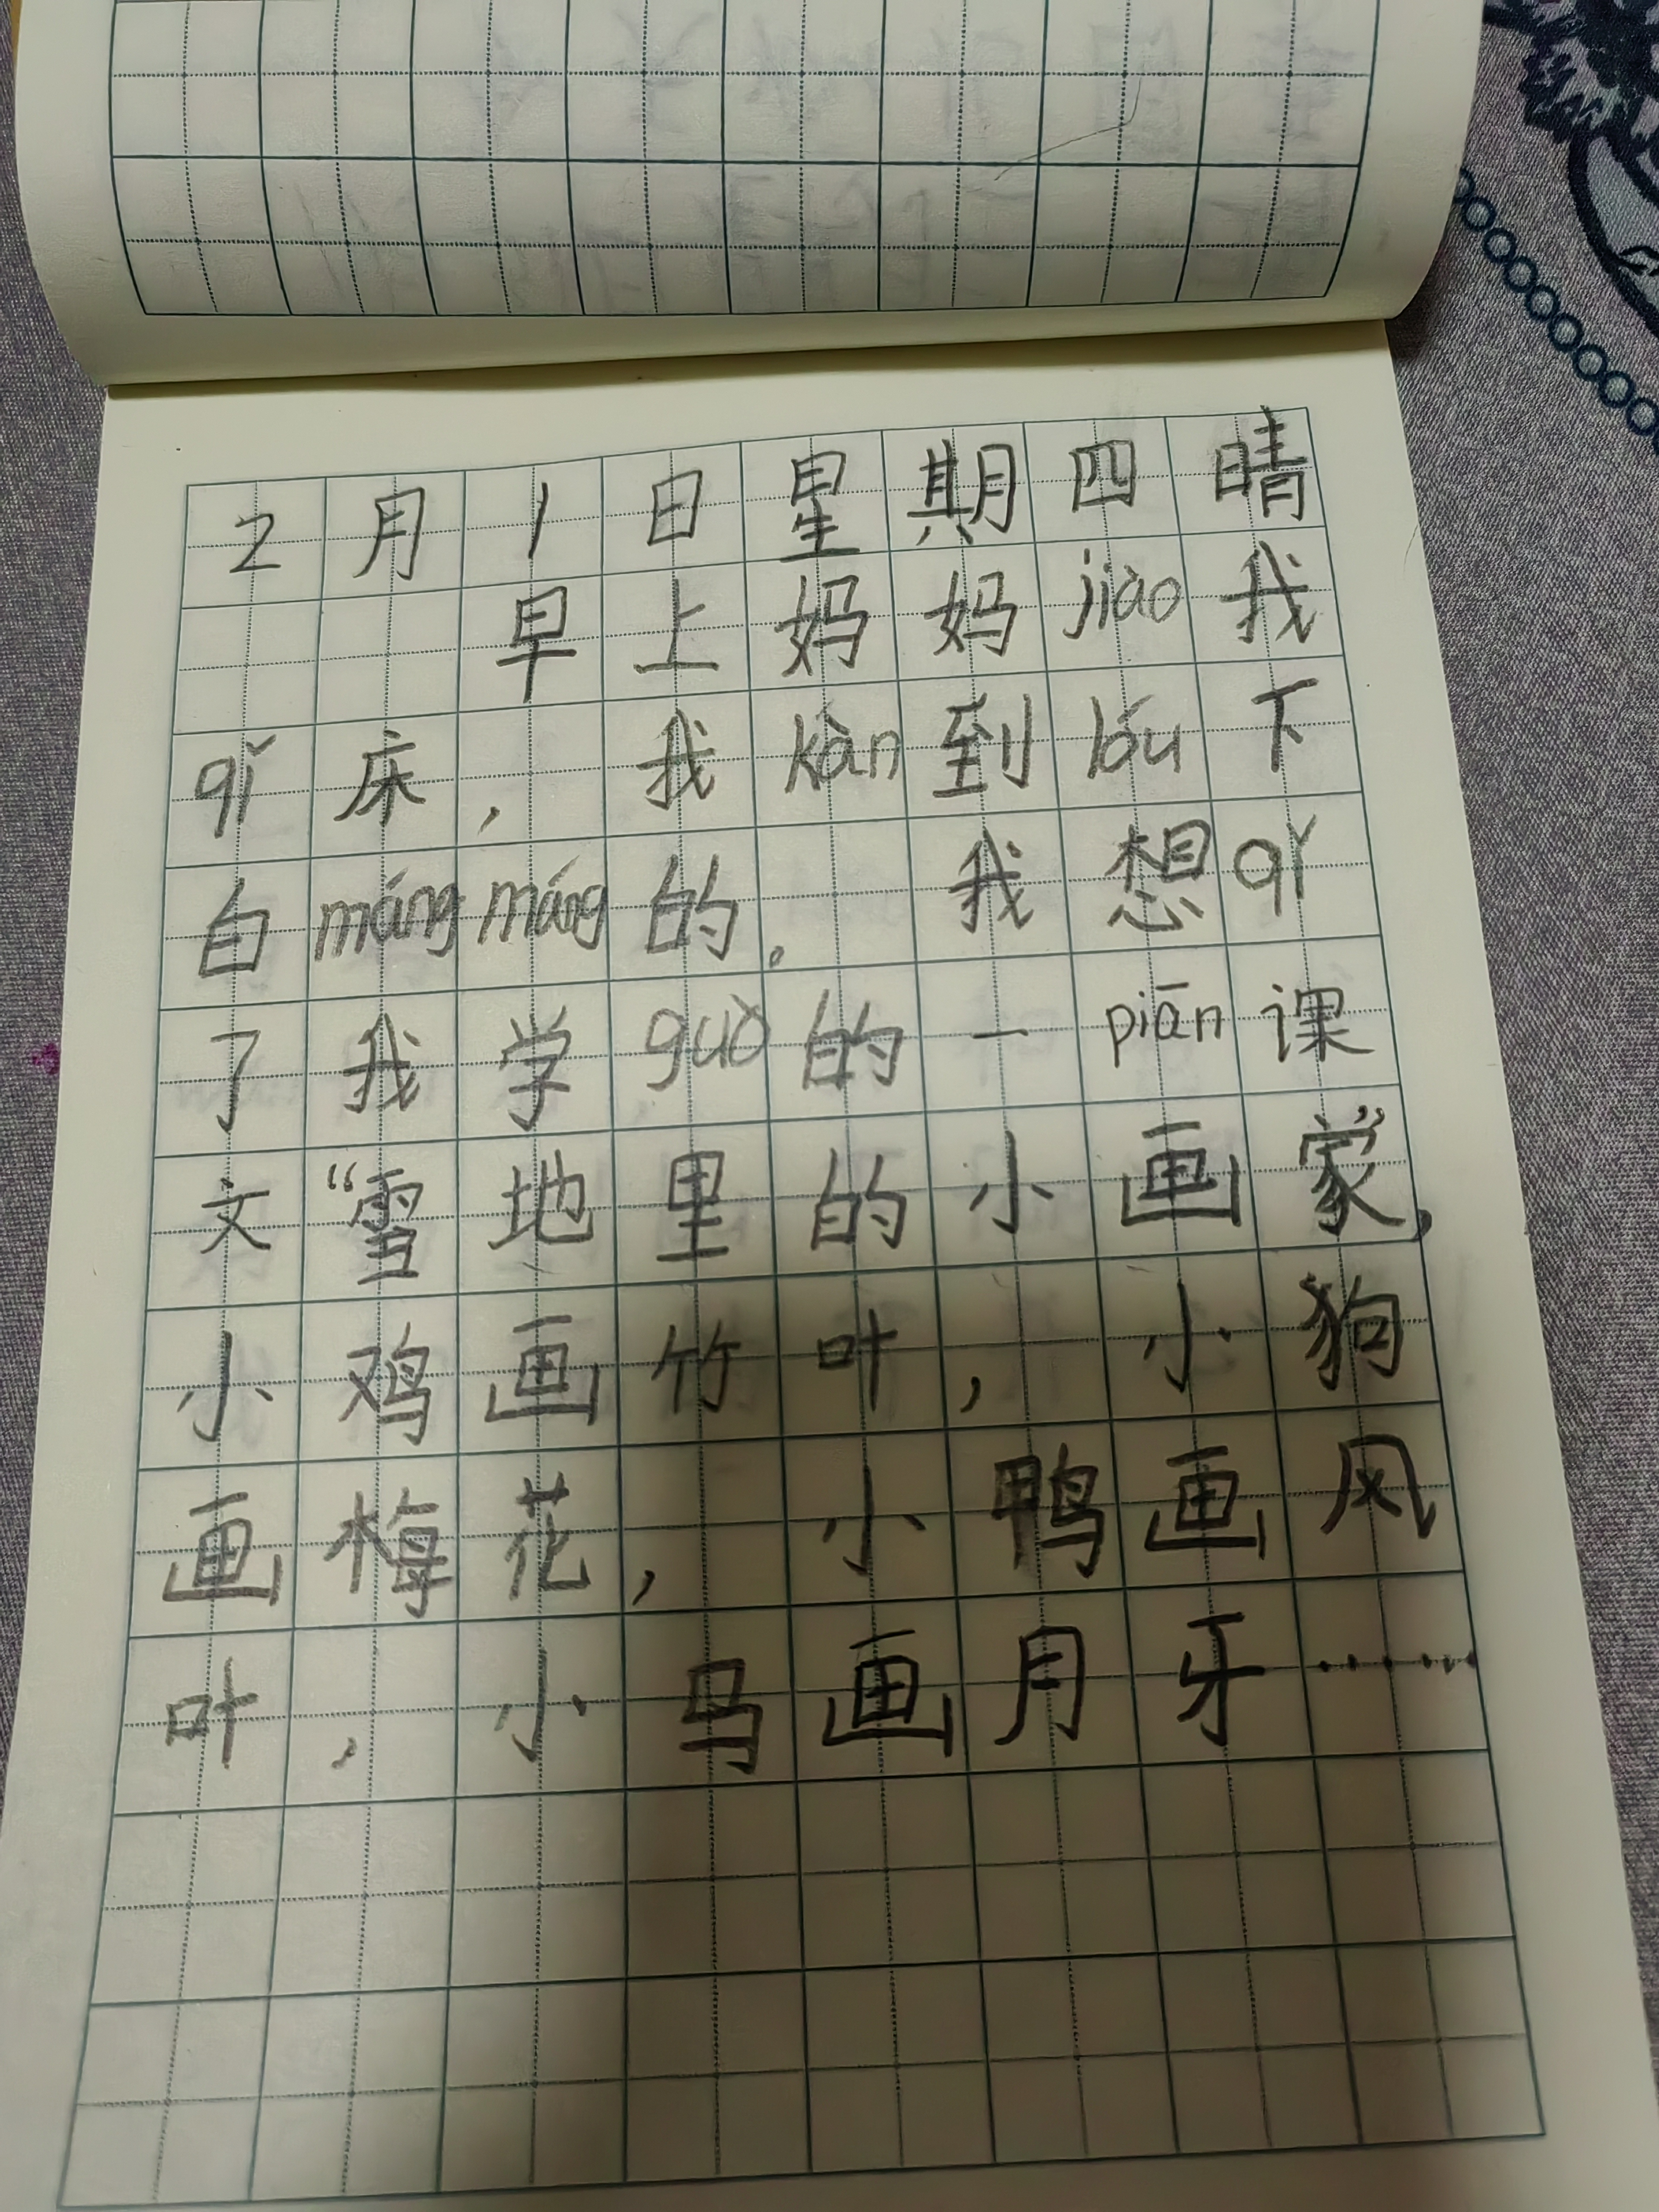 2月1日星期四晴
早上妈妈jiào我
qǐ床，我kàn到lóu下
白mángmáng的。我想qǐ
了我学guò的一piān课
文“雪地里的小画家”，
小鸡画竹叶，小狗
画梅花，小鸭画风
叶，小马画月牙……